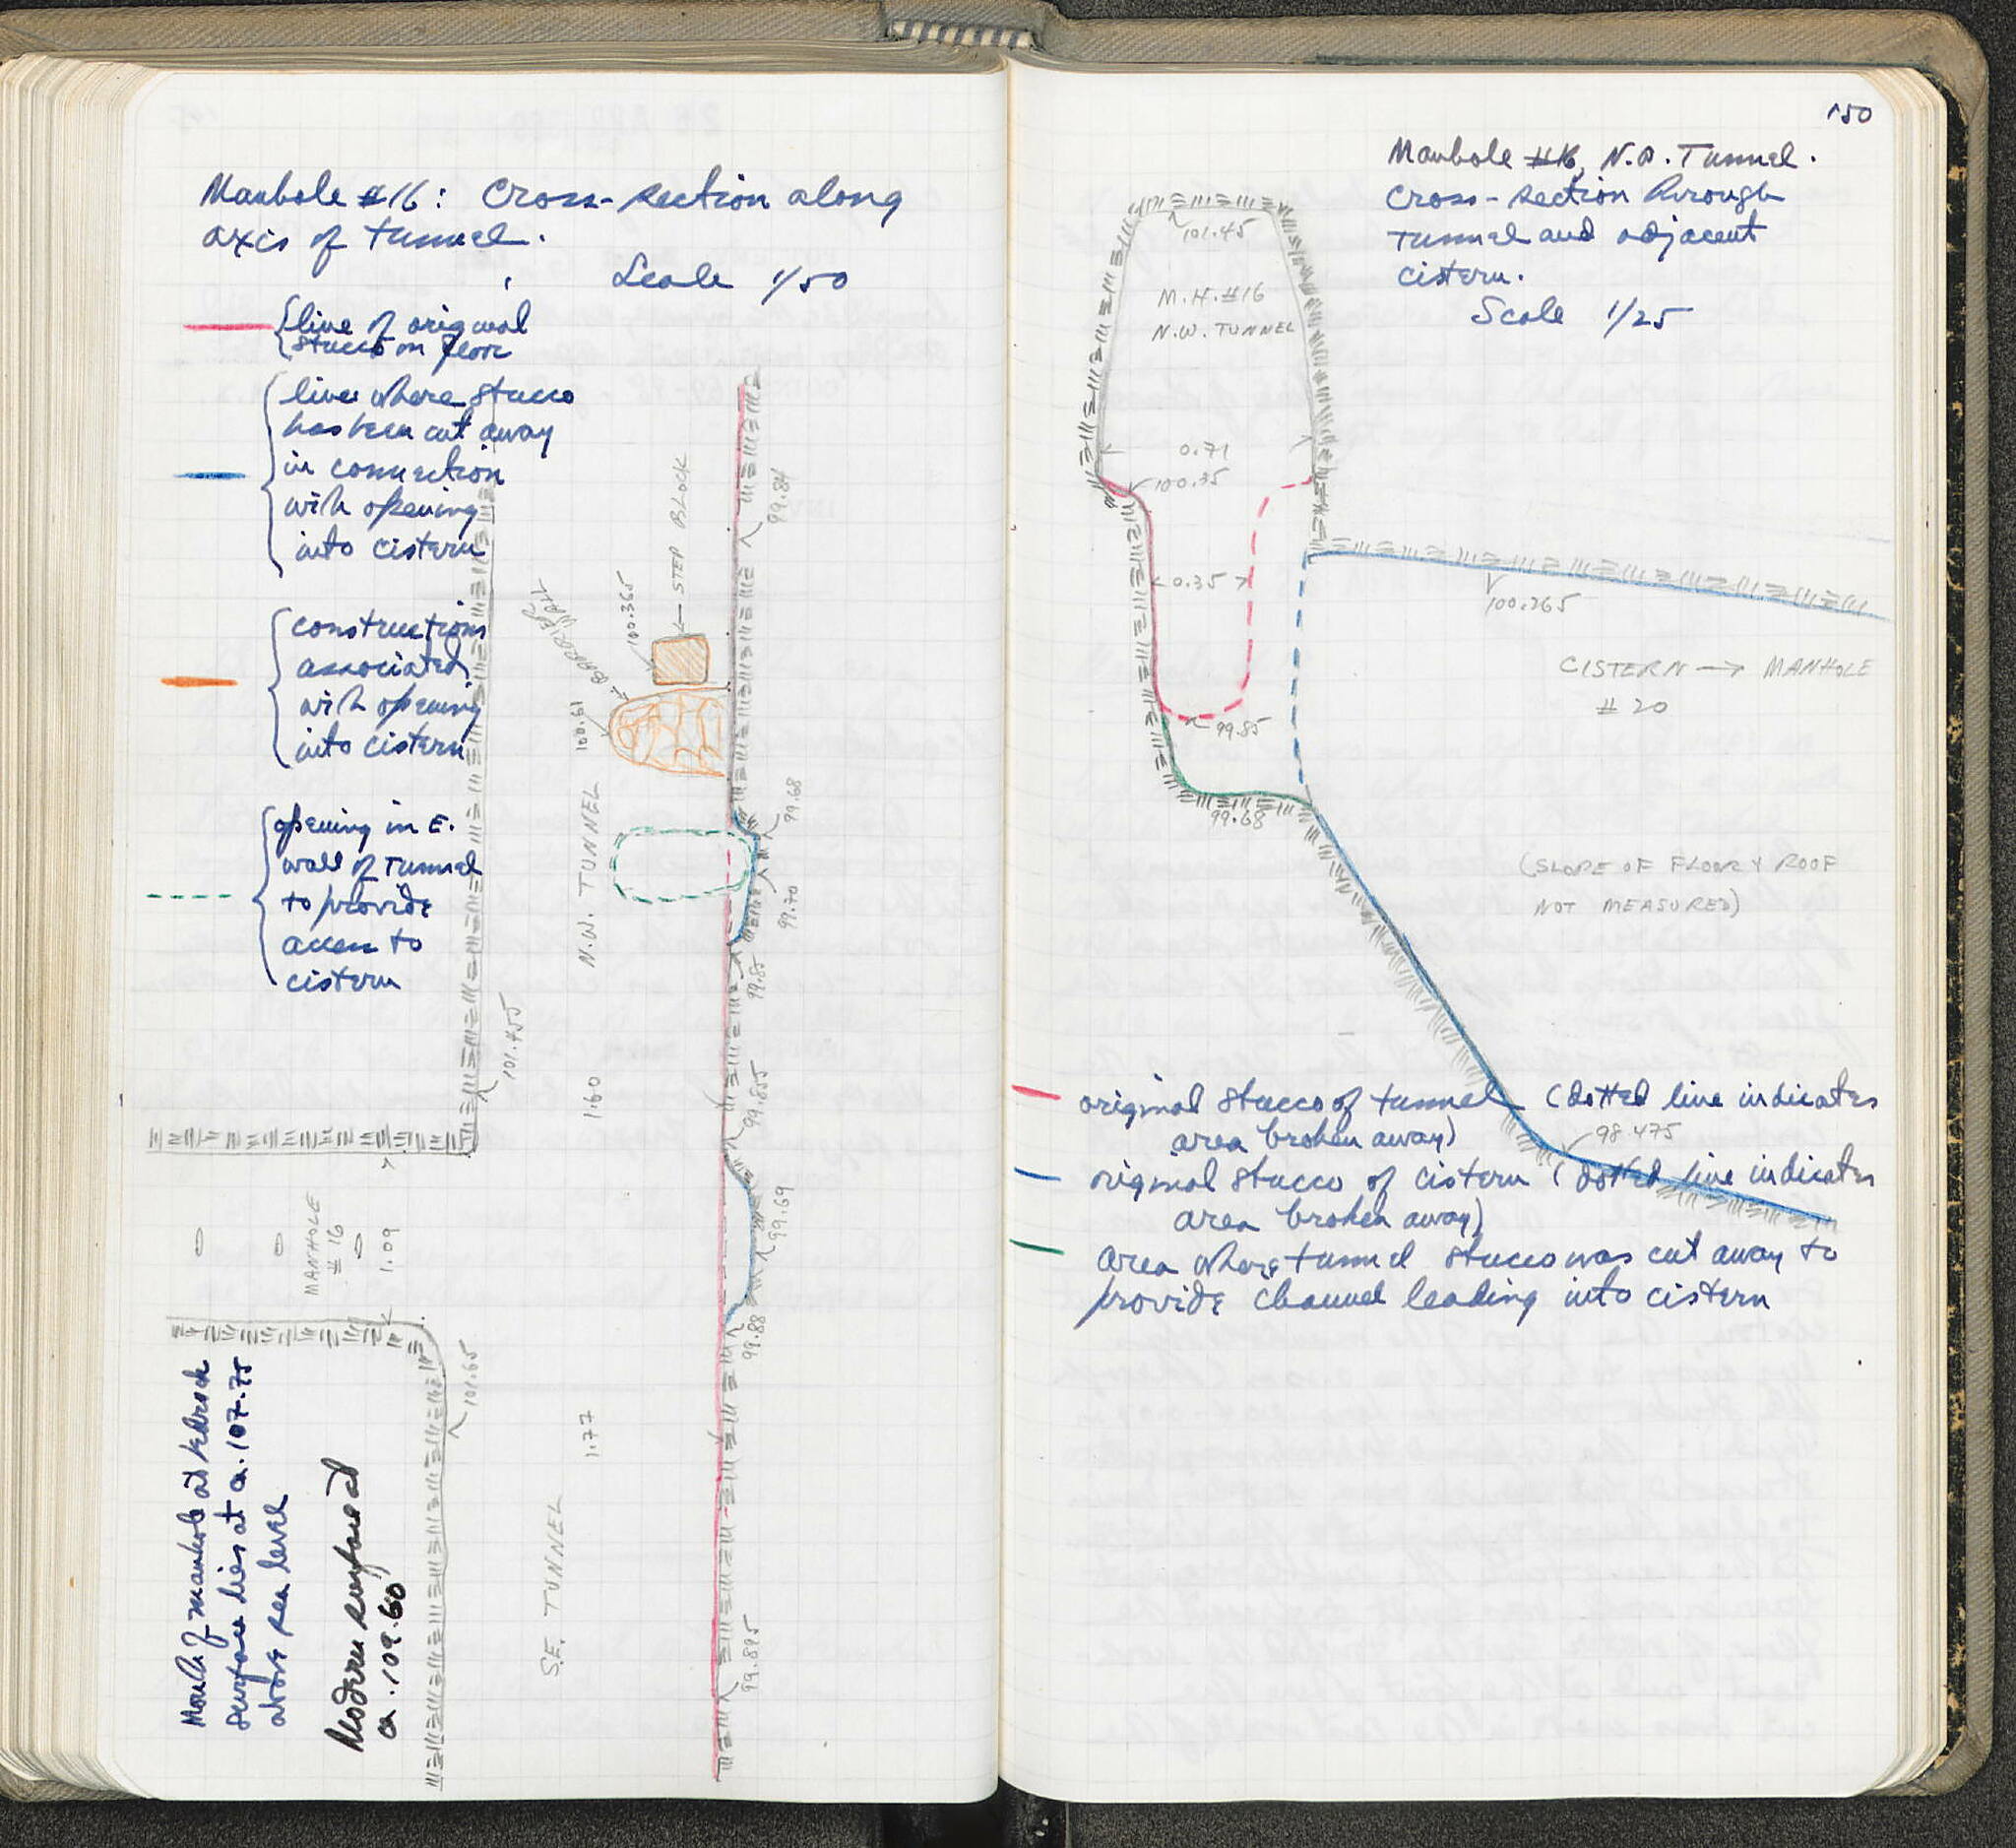 Manhole #16: Cross-section along
axis of tunnel.
Scale 1/50
line of original
stucco on floor
line where stucco
has been cut away
in connection
with opening
into cistern
constructions
associated
with opening
into cistern
opening in E.
wall of tunnel
to provide
access to
cistern
99.84
← STEP BLOCK
100.365
BARRIER WALL
100.61
99.68
N.W. TUNNEL
99.70
99.85
101.455
1.60
99.855
99.69
MANHOLE
#16
1.09
99.88
101.65
1.77
S.E. TUNNEL
99.895
Mouth of manhole at bedrock
surface lies at ca. 107.75
above sea level
Modern surface at
ca. 109.60
150
Manhole #16, N.W. Tunnel.
Cross-section through
Tunnel and adjacent
cistern.
Scale 1/25
101.45
M.H. #16
N.W. TUNNEL
0.71
100.35
0.35
100.265
CISTERN → MANHOLE
# 20
99.85
99.68
(SLOPE OF FLOOR & ROOF
NOT MEASURED)
original stucco of tunnel (dotted line indicates
area broken away)
98.475
original stucco of cistern (dotted line indicates
area broken away)
area where tunnel stucco was cut away to
provide channel leading into cistern